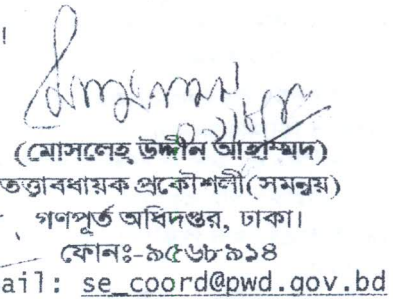 ।
(মোসলেহ্ উদ্দীন আহাম্মদ)
তত্তাবধায়ক প্রকৌশলী(সমন্বয়)
গণপূর্ত অধিদপ্তর, ঢাকা।
ফোনঃ-৯৫৬৮৯১৪
ail: se_coord@pwd.gov.bd